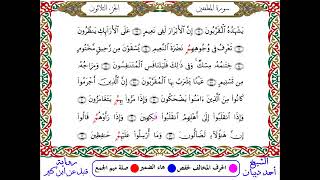 سورة المطففين الجزء الثلاثون
يَشْهَدُهُ الْمُقَرَّبُونَ إِنَّ الْأَبْرَارَ لَفِي نَعِيمٍ عَلَى الْأَرَآئِكِ يَنظُرُونَ
تَعْرِفُ فِي وُجُوهِهِمْ نَضْرَةَ النَّعِيمِ يُسْقَوْنَ مِن رَّحِيقٍ مَّخْتُومٍ
خِتَٰمُهُ مِسْكٌ وَفِي ذَٰلِكَ فَلْيَتَنَافَسِ الْمُتَنَٰفِسُونَ وَمِزَاجُهُ
مِن تَسْنِيمٍ عَيْنًا يَشْرَبُ بِهَا الْمُقَرَّبُونَ إِنَّ الَّذِينَ أَجْرَمُوا
كَانُوا مِنَ الَّذِينَ ءَامَنُوا يَضْحَكُونَ وَإِذَا مَرُّوا بِهِمُ يَتَغَامَزُونَ
وَإِذَا انقَلَبُوا إِلَىٰ أَهْلِهِمُ انقَلَبُوا فَٰكِهِينَ وَإِذَا رَأَوْهُمُ قَالُوا
إِنَّ هَٰؤُلَآءِ لَضَآلُّونَ وَمَآ أُرْسِلُوا عَلَيْهِمُ حَٰفِظِينَ
الشيخ أحمد ديبان
الحرف المخالف لحفص هاء الضمير صلة ميم الجمع
رواية قنبل عن ابن كثير